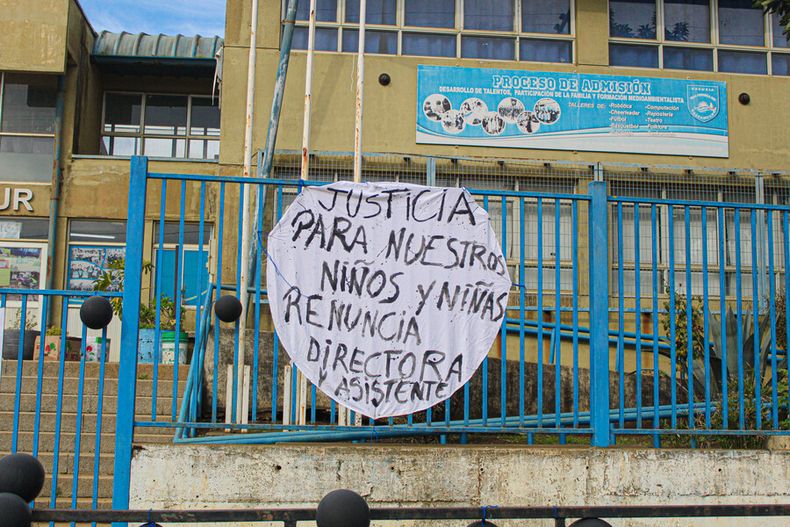 PROCESO DE ADMISIÓN
DESARROLLO DE TALENTOS, PARTICIPACIÓN DE LA FAMILIA Y FORMACIÓN MEDIOAMBIENTAL
TALLERES DE:
-Robótica
-Cheerleader
-Fútbol
-Basquetbol
-Computación
-Repostería
-Teatro
-Folklore
UR
JUSTICIA
PARA NUESTROS
NIÑOS Y NIÑAS
RENUNCIA
DIRECTORA
Y ASISTENTE